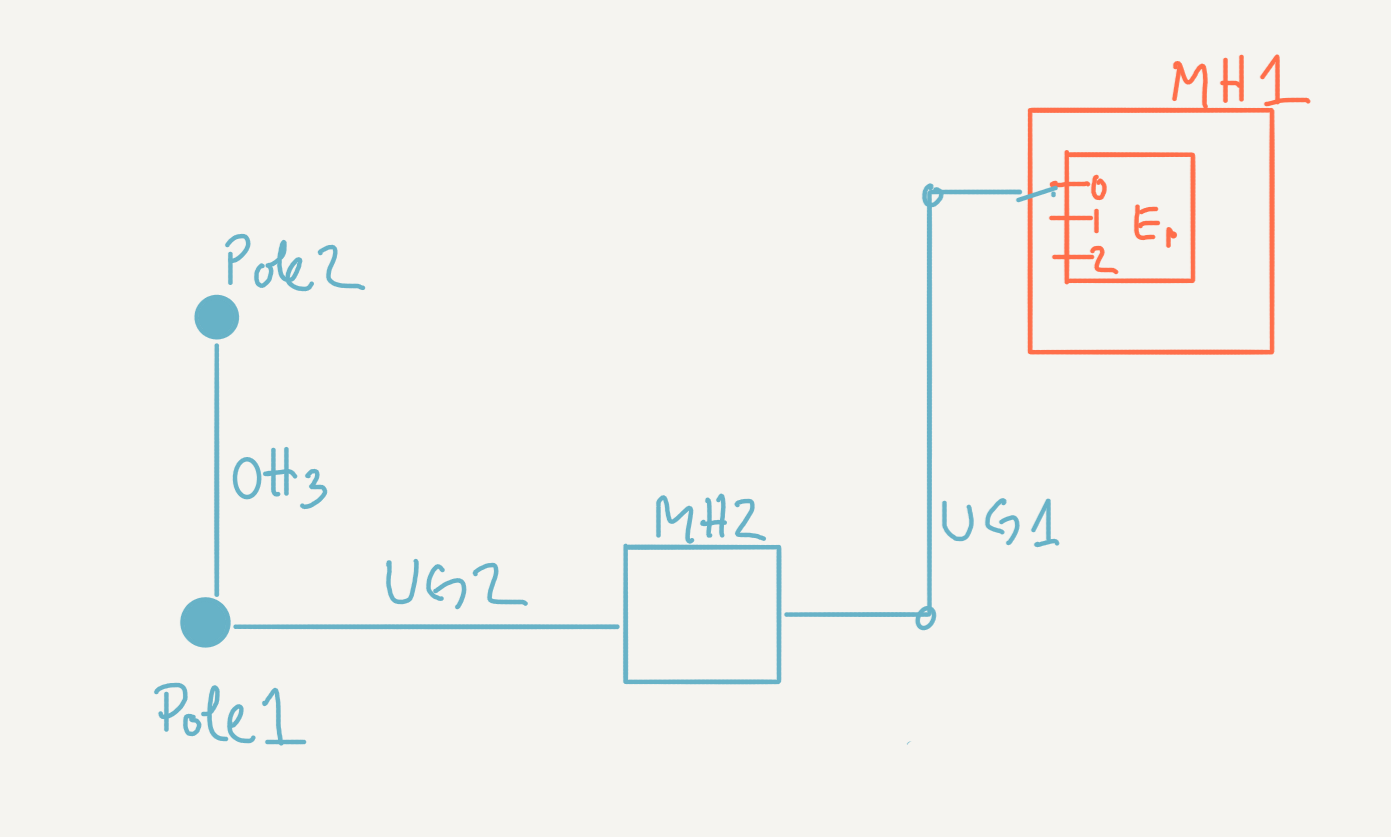 MH1
0
1
E1
2
Pole2
OH3
MH2
UG1
UG2
Pole1